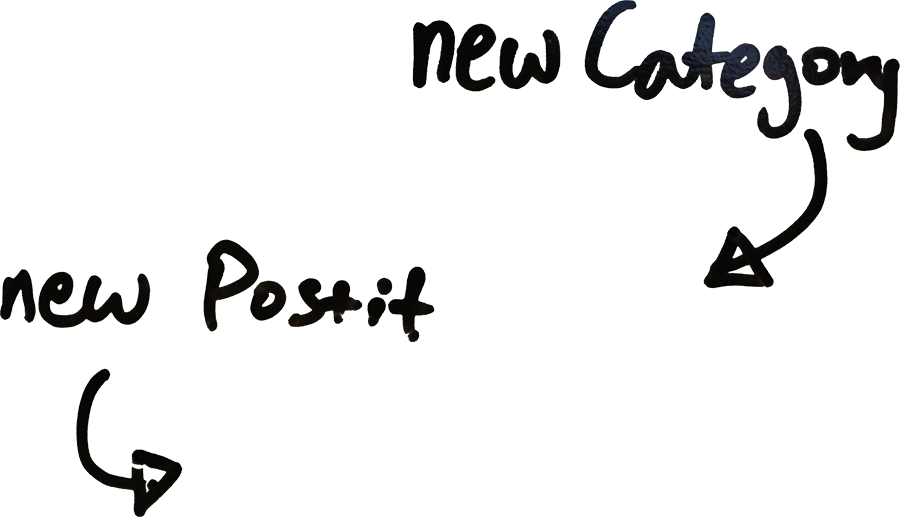 new Category
new Postit